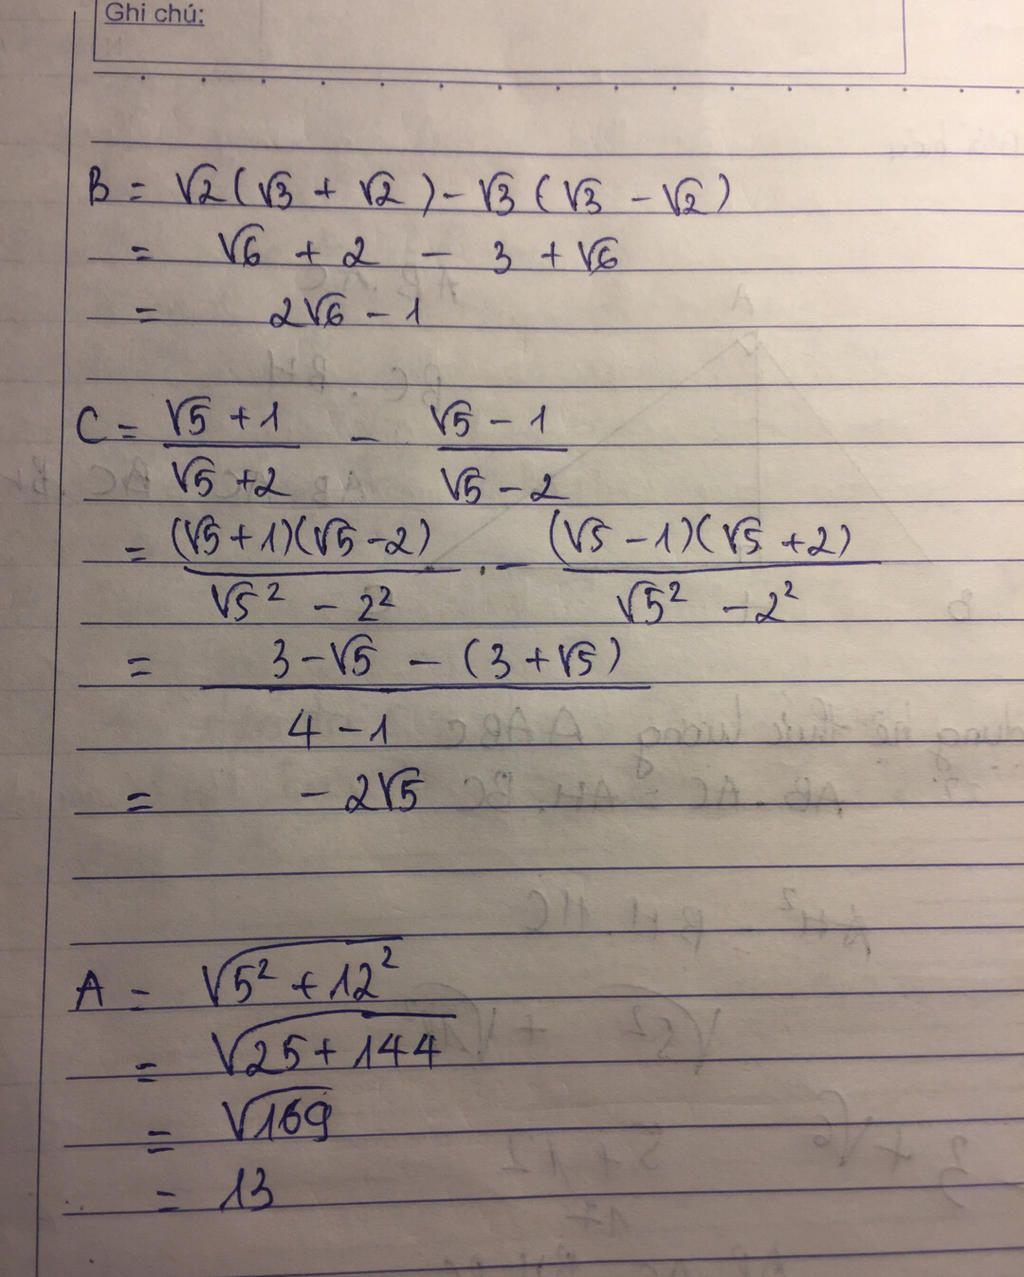 Ghi chú:
B = √2 (√3 + √2) - √3 (√3 - √2)
= √6 + 2 - 3 + √6
= 2√6 - 1
C = (√5 + 1)/(√5 + 2) - (√5 - 1)/(√5 - 2)
= (√5 + 1)(√5 - 2)/(√5² - 2²) - (√5 - 1)(√5 + 2)/(√5² - 2²)
= (3 - √5 - (3 + √5))/(4 - 1)
= - 2√5
A = √(5² + 12²)
= √(25 + 144)
= √169
= 13